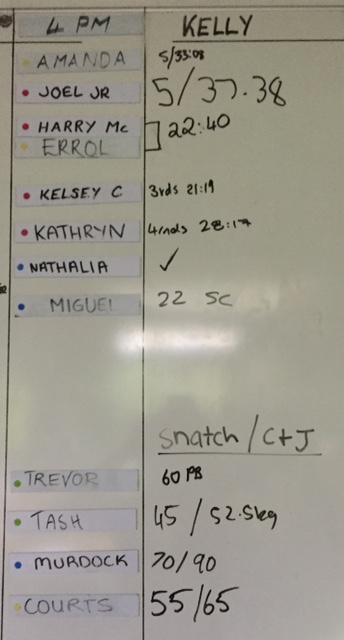 4 PM KELLY
AMANDA 5/33:08
JOEL JR 5/37.38
HARRY Mc 22:40
ERROL
KELSEY C 3rds 21:19
KATHRYN 4rnds 28:17
NATHALIA ✓
MIGUEL 22 SC
Snatch / C+J
TREVOR 60 PB
TASH 45 / 52.5kg
MURDOCK 70/90
COURTS 55/65